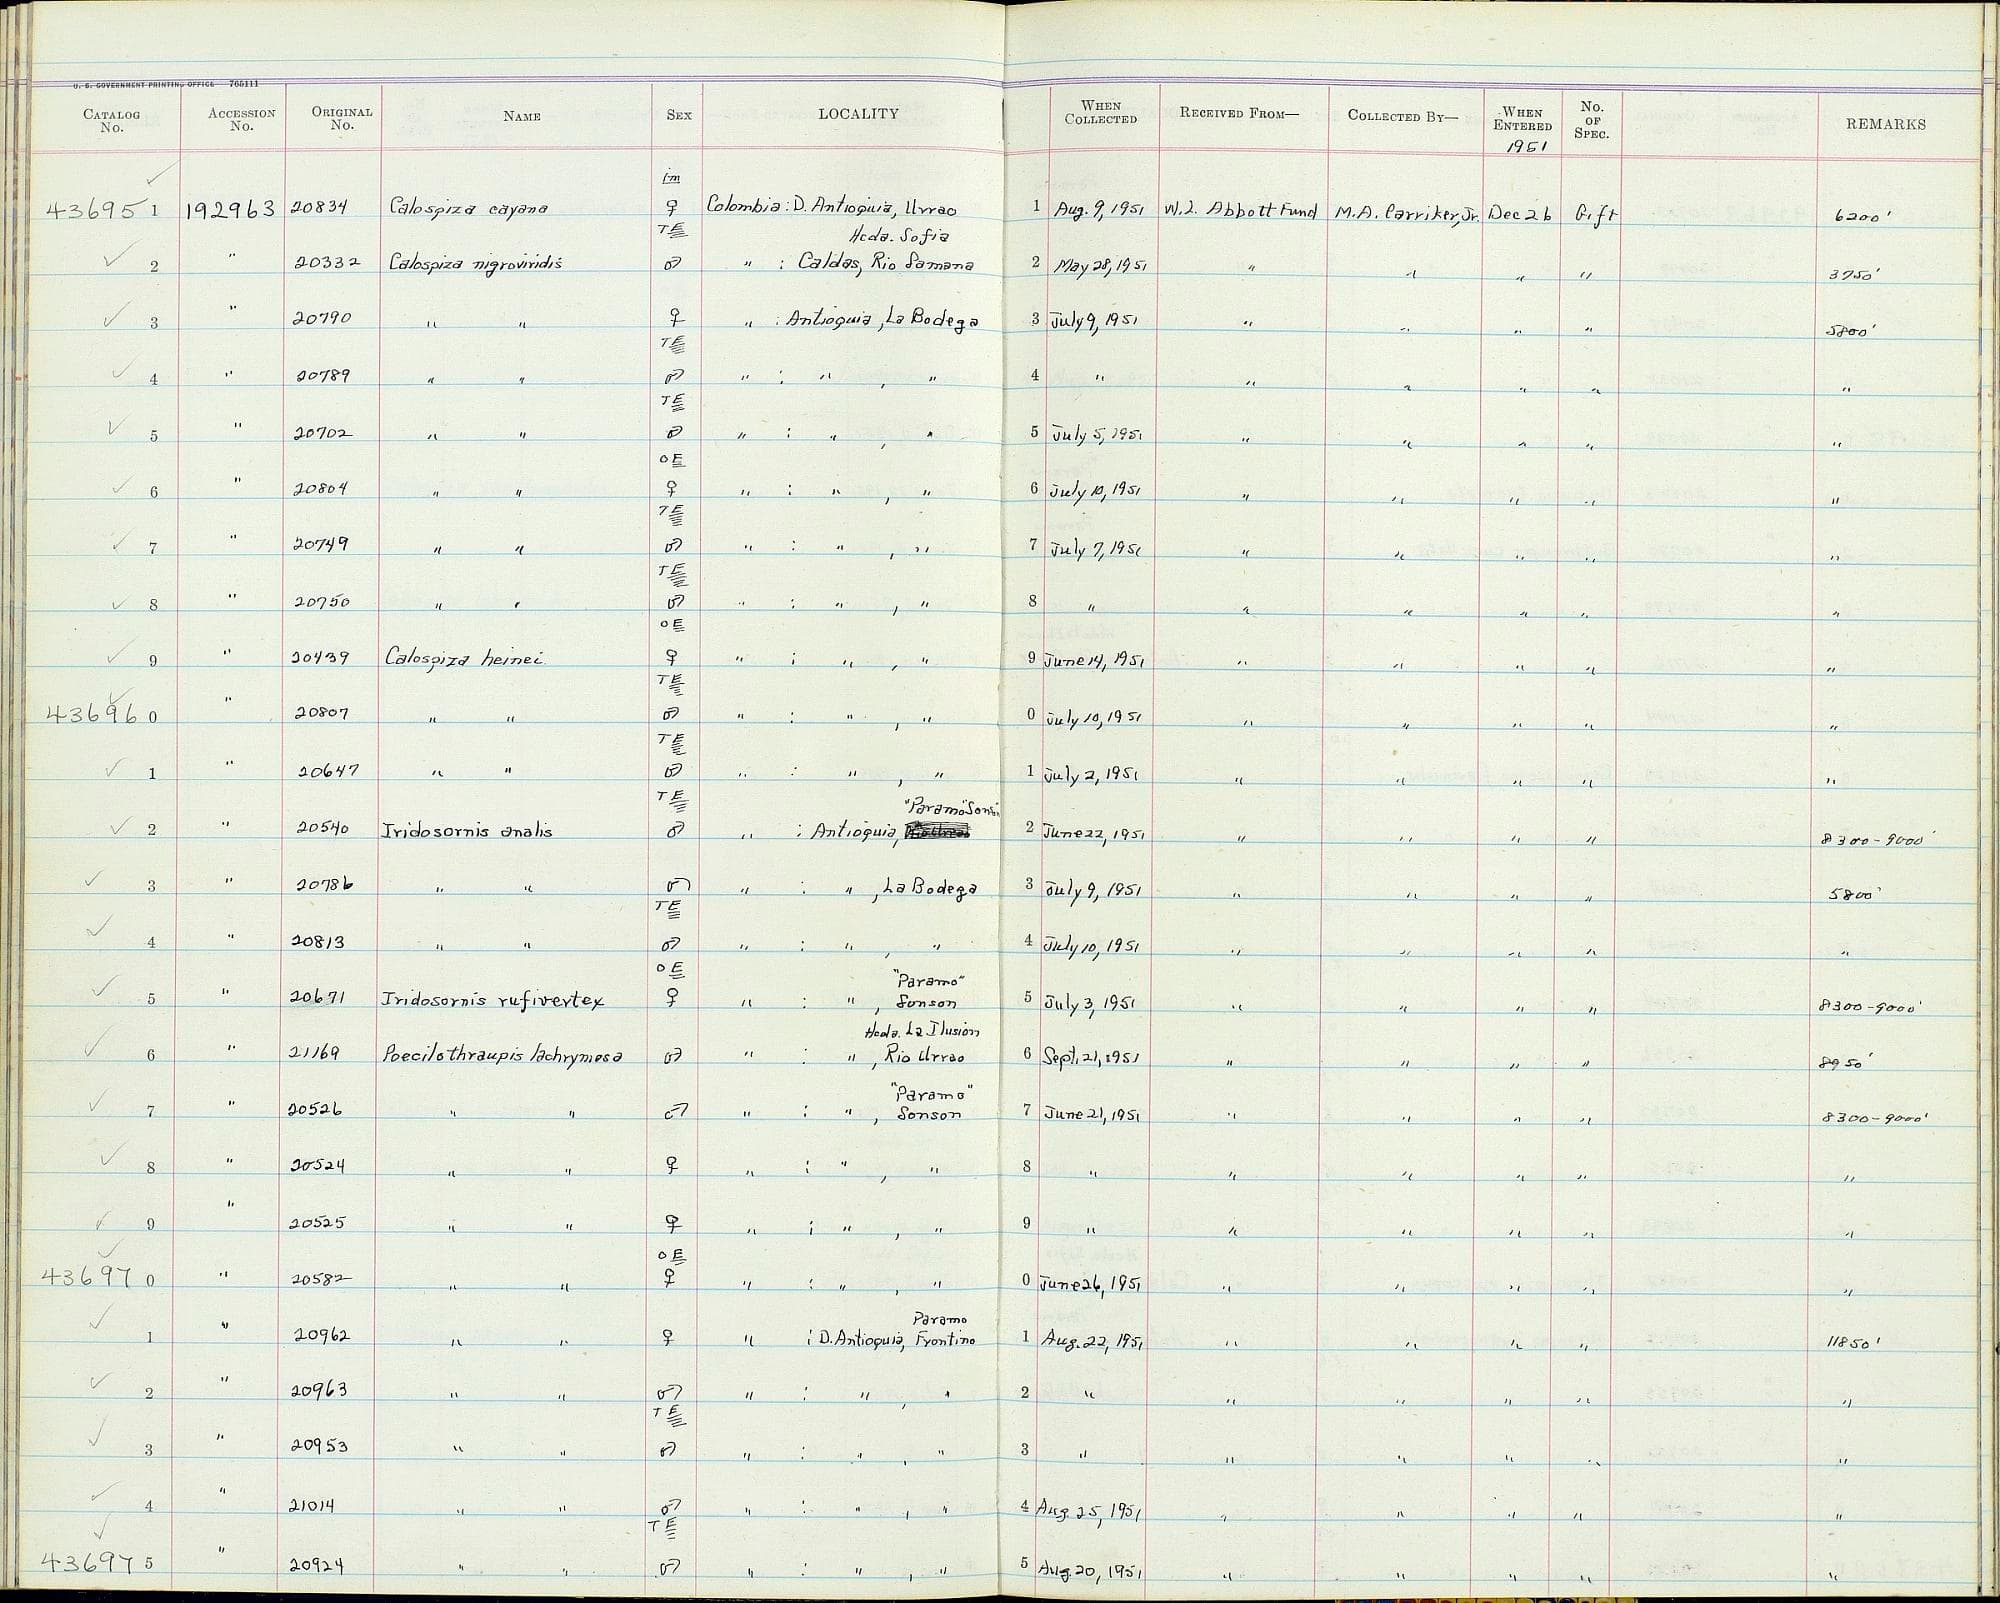 U. S. GOVERNMENT PRINTING OFFICE 765111
CATALOG No. ACCESSION No. ORIGINAL No. NAME SEX LOCALITY WHEN COLLECTED RECEIVED FROM— COLLECTED BY— WHEN ENTERED 1951 No. OF SPEC. REMARKS
im
43695 1 192963 20834 Calospiza cayana ♀ Colombia: D. Antioquia, Urrao 1 Aug. 9, 1951 W.L. Abbott Fund M.A. Carriker, Jr. Dec 26 Gift 6200'
TE Hcda. Sofia
2 " 20332 Calospiza nigroviridis ♂ " : Caldas, Rio Samana 2 May 28, 1951 " " " " 3750'
3 " 20790 " " ♀ " : Antioquia, La Bodega 3 July 9, 1951 " " " " 5800'
TE
4 " 20789 " " ♂ " : " , " 4 " " " " " "
TE
5 " 20702 " " ♂ " : " , " 5 July 5, 1951 " " " " "
OE
6 " 20804 " " ♀ " : " , " 6 July 10, 1951 " " " " "
TE
7 " 20749 " " ♂ " : " , " 7 July 7, 1951 " " " " "
TE
8 " 20750 " " ♂ " : " , " 8 " " " " " "
OE
9 " 20439 Calospiza heinei ♀ " : " , " 9 June 14, 1951 " " " " "
TE
43696 0 " 20807 " " ♂ " : " , " 0 July 10, 1951 " " " " "
TE
1 " 20647 " " ♂ " : " , " 1 July 2, 1951 " " " " "
TE "Paramo" Sonson
2 " 20540 Iridosornis analis ♂ " : Antioquia, 2 June 22, 1951 " " " " 8300-9000'
3 " 20786 " " ♂ " : " , La Bodega 3 July 9, 1951 " " " " 5800'
TE
4 " 20813 " " ♂ " : " , " 4 July 10, 1951 " " " " "
OE "Paramo"
5 " 20671 Iridosornis rufivertex ♀ " : " , Sonson 5 July 3, 1951 " " " " 8300-9000'
Hcda. La Ilusion
6 " 21169 Poecilothraupis lachrymosa ♂ " : " , Rio Urrao 6 Sept. 21, 1951 " " " " 8950'
"Paramo"
7 " 20526 " " ♂ " : " , Sonson 7 June 21, 1951 " " " " 8300-9000'
8 " 20524 " " ♀ " : " , " 8 " " " " " "
9 " 20525 " " ♀ " : " , " 9 " " " " " "
OE
43697 0 " 20582 " " ♀ " : " , " 0 June 26, 1951 " " " " "
Paramo
1 " 20962 " " ♀ " : D. Antioquia, Frontino 1 Aug. 22, 1951 " " " " 11850'
2 " 20963 " " ♂ " : " , " 2 " " " " " "
TE
3 " 20953 " " ♂ " : " , " 3 " " " " " "
4 " 21014 " " ♂ " : " , " 4 Aug. 25, 1951 " " " " "
TE
43697 5 " 20924 " " ♂ " : " , " 5 Aug. 20, 1951 " " " " "